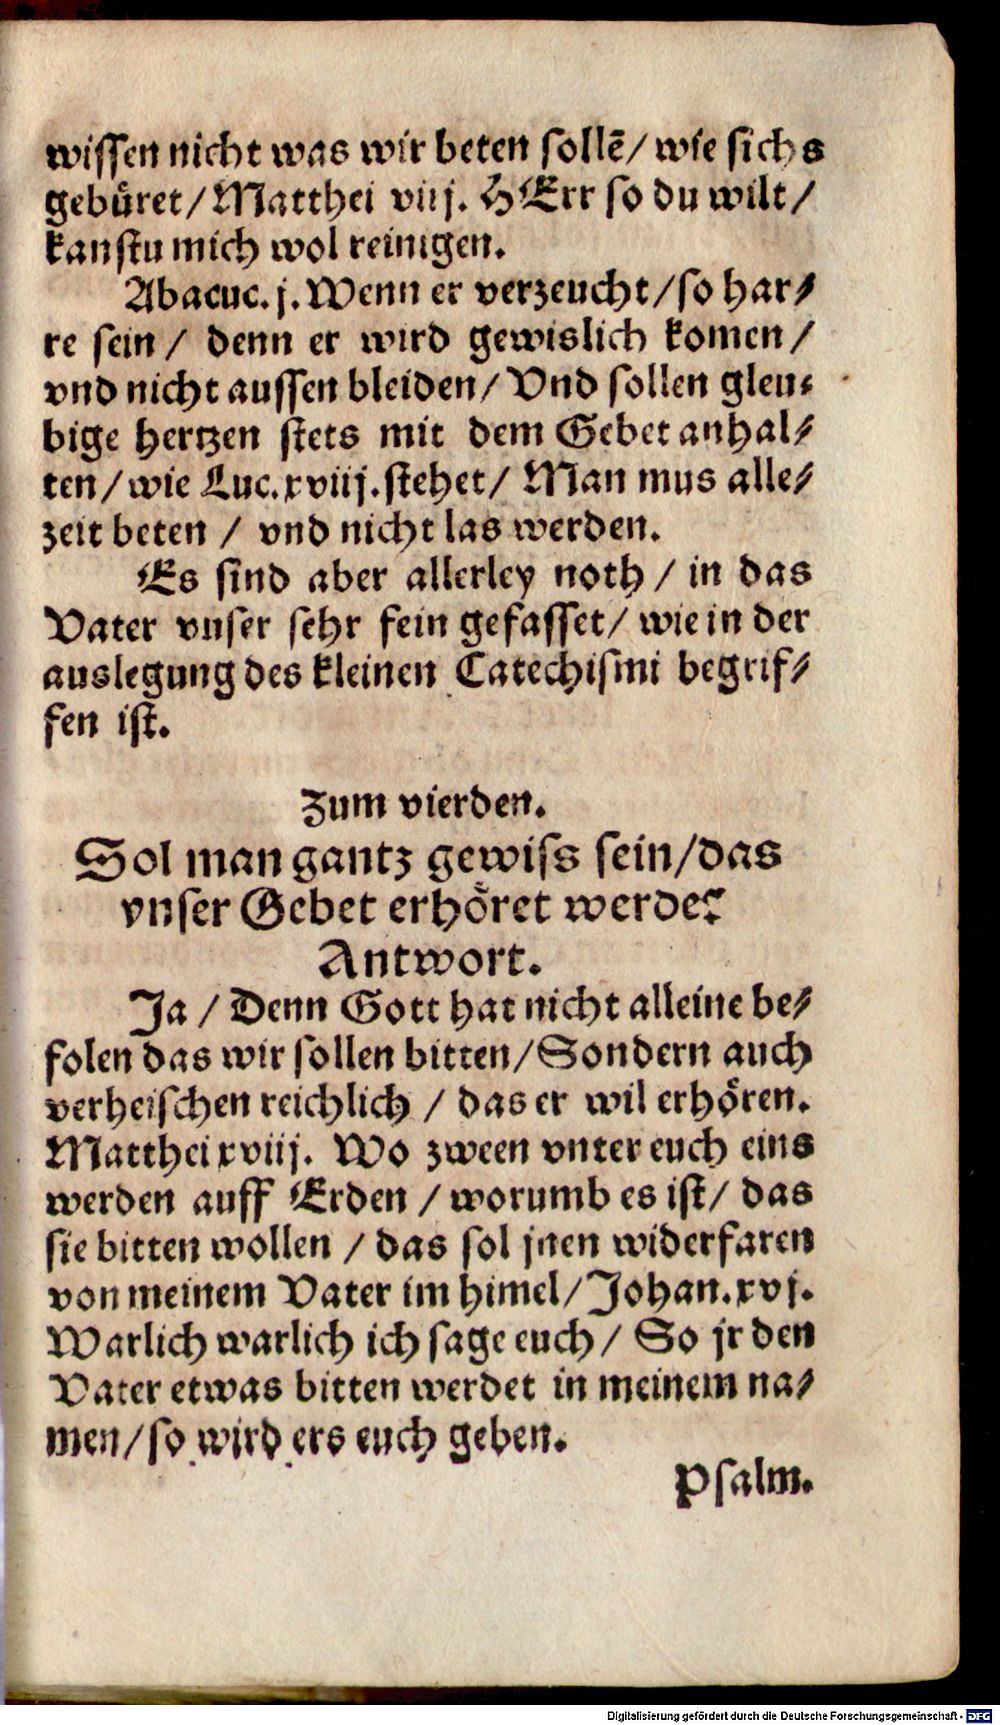 wissen nicht was wir beten sollẽ/ wie sichs
gebüret/ Matthei viij. HErr so du wilt/
kanstu mich wol reinigen.
Abacuc. j. Wenn er verzeucht/ so har⸗
re sein/ denn er wird gewislich komen/
vnd nicht aussen bleiden/ Vnd sollen gleu⸗
bige hertzen stets mit dem Gebet anhal⸗
ten/ wie Luc. xviij. stehet/ Man mus alle⸗
zeit beten/ vnd nicht las werden.
Es sind aber allerley noth/ in das
Vater vnser sehr fein gefasset/ wie in der
auslegung des kleinen Catechismi begrif⸗
fen ist.
Zum vierden.
Sol man gantz gewiss sein/ das
vnser Gebet erhöret werde?
Antwort.
Ja/ Denn Gott hat nicht alleine be⸗
folen das wir sollen bitten/ Sondern auch
verheischen reichlich/ das er wil erhören.
Matthei xviij. Wo zween vnter euch eins
werden auff Erden/ worumb es ist/ das
sie bitten wollen/ das sol jnen widerfaren
von meinem Vater im himel/ Johan. xvj.
Warlich warlich ich sage euch/ So jr den
Vater etwas bitten werdet in meinem na⸗
men/ so wird ers euch geben.
Psalm.
Digitalisierung gefördert durch die Deutsche Forschungsgemeinschaft - DFG